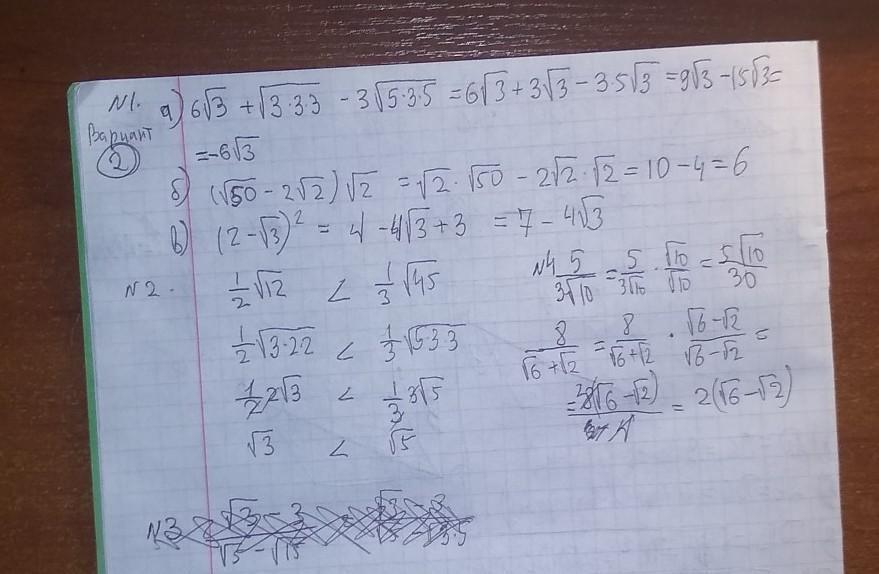 N1. а) 6√3 + √3·3·3 - 3√5·3·5 = 6√3 + 3√3 - 3·5√3 = 9√3 - 15√3 =
Вариант
2
= -6√3
б) (√50 - 2√2)√2 = √2·√50 - 2√2·√2 = 10 - 4 = 6
в) (2-√3)² = 4 - 4√3 + 3 = 7 - 4√3
N2. 1/2 √12 < 1/3 √45
1/2 √3·2·2 < 1/3 √5·3·3
1/2 2√3 < 1/3 3√5
√3 < √5
N4 5/3√10 = 5/3√10 · √10/√10 = 5√10/30
8/√6+√2 = 8/√6+√2 · √6-√2/√6-√2 =
= 8(√6-√2)/4 = 2(√6-√2)
N3